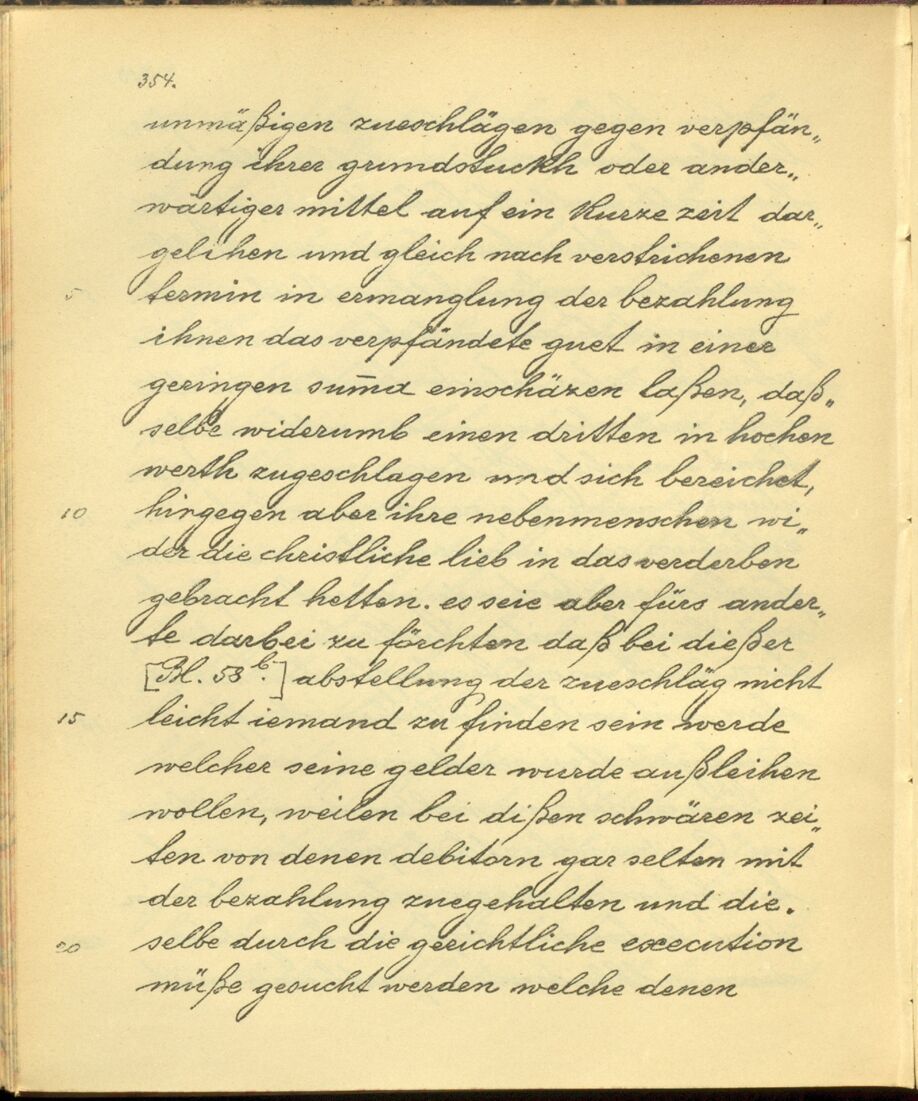 354.
unmäßigen zueschlägen gegen verpfän„
dung ihrer grundstuckh oder ander„
wärtiger mittel auf ein kurze zeit dar„
gelihen und gleich nach verstrichenen
5 termin in ermanglung der bezahlung
ihnen das verpfändete guet in einer
geringen sum̅a einschäzen laßen, daß„
selbe widerumb einen dritten in hochen
werth zugeschlagen und sich bereichet,
10 hingegen aber ihre nebenmenschen wi„
der die christliche lieb in das verderben
gebracht hetten. es seie aber fürs ander„
te darbei zu förchten daß bei dießer
[Bl. 58 b.] abstellung der zueschläg nicht
15 leicht iemand zu finden sein werde
welcher seine gelder wurde außleihen
wollen, weilen bei dißen schwären zei„
ten von denen debitorn gar selten mit
der bezahlung zuegehalten und die.
20 selbe durch die gerichtliche execution
müße gesucht werden welche denen